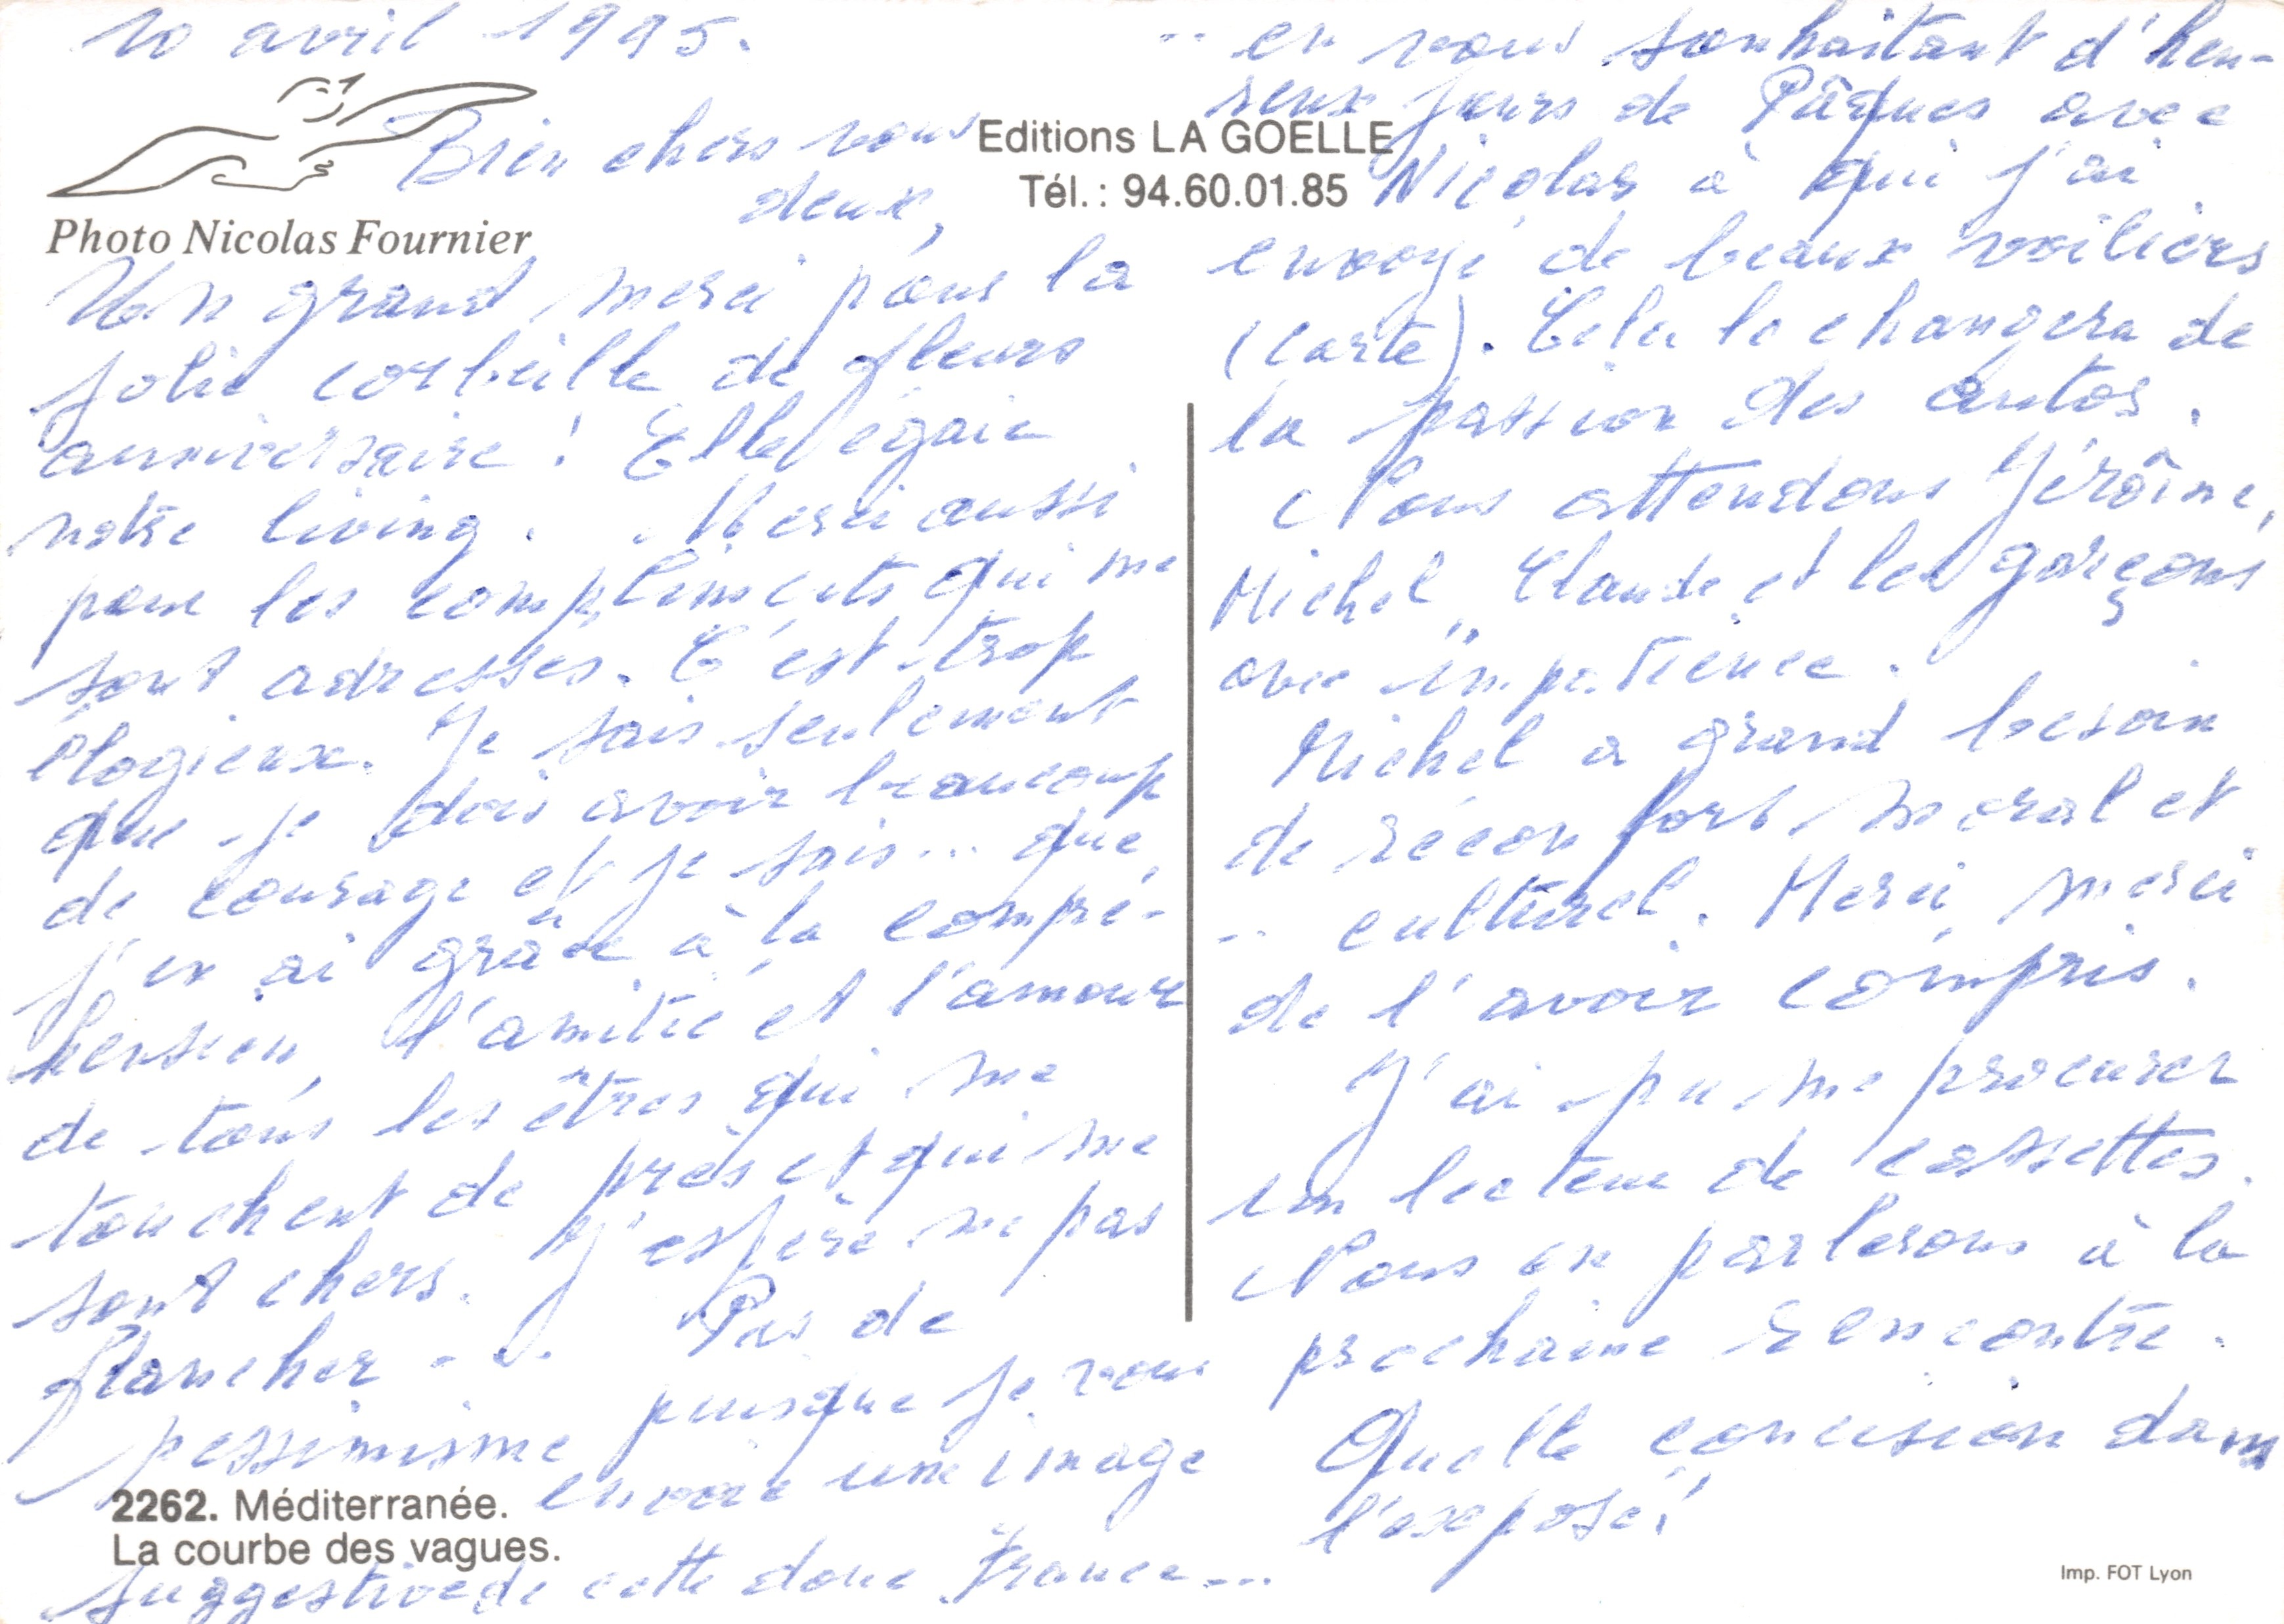 10 avril 1995.
Bien chers vous
deux,
Editions LA GOELLE
Tél. : 94.60.01.85
Photo Nicolas Fournier
Un grand merci pour la
jolie corbeille de fleurs
anniversaire ! Elle égaie
notre living. Merci aussi
pour les compliments qui me
sont adressés. C'est trop
élogieux. Je sais seulement
que je dois avoir beaucoup
de courage et je sais... que
j'en ai grâce à la compré-
hension, l'amitié et l'amour
de tous les êtres qui me
touchent de près et qui me
sont chers. J'espère ne pas
flancher... Pas de
pessimisme puisque je vous
envoie une image
2262. Méditerranée.
La courbe des vagues.
suggestive de cette douce France...
.. en vous souhaitant d'heu-
reux jours de Pâques avec
Nicolas à qui j'ai
envoyé de beaux voiliers
(carte). Cela le changera de
la passion des autos.
Nous attendons Jérôme,
Michel, Claude et les garçons
avec impatience.
Michel a grand besoin
de réconfort moral et
.. culturel. Merci, merci
de l'avoir compris.
J'ai pu me procurer
un lecteur de cassettes.
Nous en parlerons à la
prochaine rencontre.
Quelle concision dans
l'exposé !
Imp. FOT Lyon